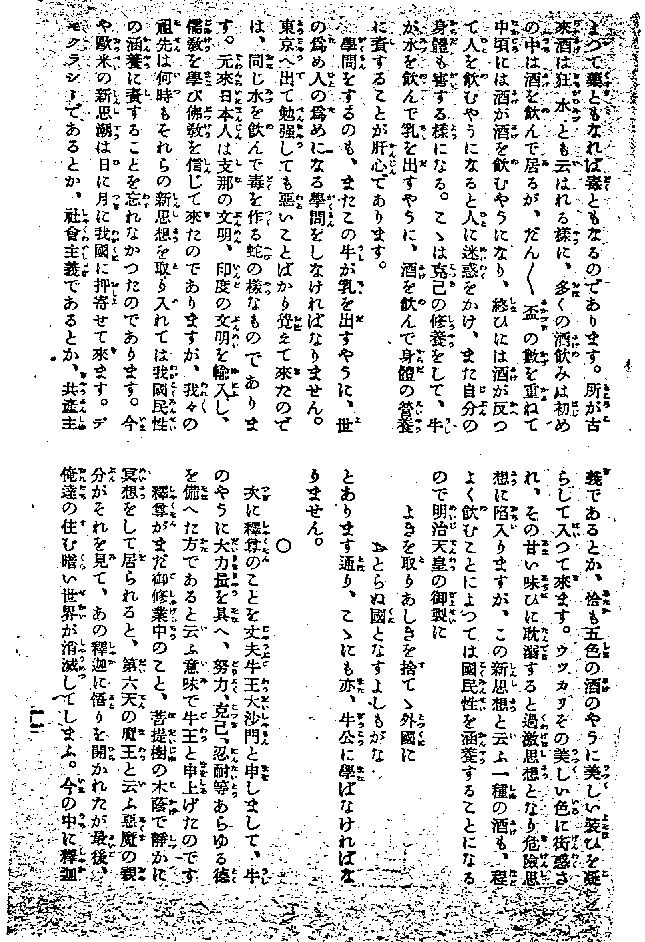 よつて藥ともなれば毒ともなるのであります。所が古
來酒は狂水とも云はれる樣に、多くの酒飮みは初め
の中は酒を飮んで居るが、だん〳〵盃の數を重ねて
中頃には酒が酒を飮むやうになり、終ひには酒が反つ
て人を飮むやうになると人に迷惑をかけ、また自分の
身體も害する樣になる。こゝは克己の修養をして、牛
が水を飮んで乳を出すやうに、酒を飮んで身體の營養
に資することが肝心であります。
學問をするのも、またこの牛が乳を出すやうに、世
の爲め人の爲めになる學問をしなければなりません。
東京へ出て勉强しても惡いことばかり覺えて來たので
は、同じ水を飮んで毒を作る蛇の樣なものでありま
す。元來日本人は支那の文明、印度の文明を輸入し、
儒敎を學び佛敎を信じて來たのでありますが、我々の
祖先は何時もそれらの新思想を取り入れては我國民性
の涵養に資することを忘れなかつたのであります。今
や歐米の新思潮は日に月に我國に押寄せて來ます。デ
モクラシーであるとか、社會主義であるとか、共產主
義であるとか、恰も五色の酒のやうに美しい裝ひを凝
らして入つて來ます。ウツカリその美しい色に衒惑さ
れ、その甘い味ひに耽溺すると過激思想となり危險思
想に陷入りますが、この新思想と云ふ一種の酒も、程
よく飮むことによつては國民性を涵養することになる
ので明治天皇の御製に
よきを取りあしきを捨てゝ外國に
おとらぬ國となすよしもがな
とあります通り、こゝにも亦、牛公に學ばなければな
りません。
○
次に釋尊のことを丈夫牛王大沙門と申しまして、牛
のやうに大力量を具へ、努力、克己、忍耐等あらゆる德
を備へた方であると云ふ意味で牛王と申上げたのです
釋尊がまだ御修業中のこと、菩提樹の木蔭で靜かに
冥想をして居られると、第六天の魔王と云ふ惡魔の親
分がそれを見て、あの釋迦に悟りを開かれたが最後、
俺達の住む暗い世界が消滅してしまふ。今の中に釋迦